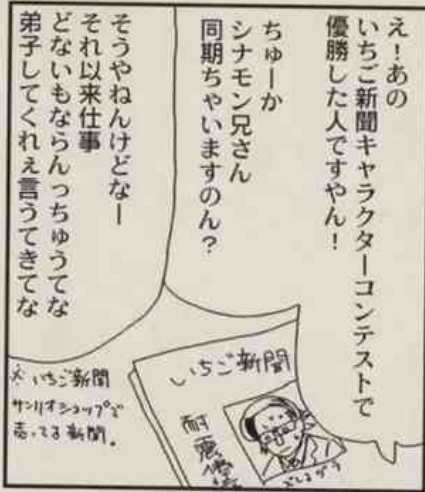 え！あの
いちご新聞キャラクターコンテストで
優勝した人ですやん！
ちゅーか
シナモン兄さん
同期ちゃいますのん？
そうやねんけどなー
それ以来仕事
どないもならんっちゅうてな
弟子してくれぇ言うてきてな
いちご新聞
耐震偽
※いちご新聞
サンリオショップで
売ってる新聞。